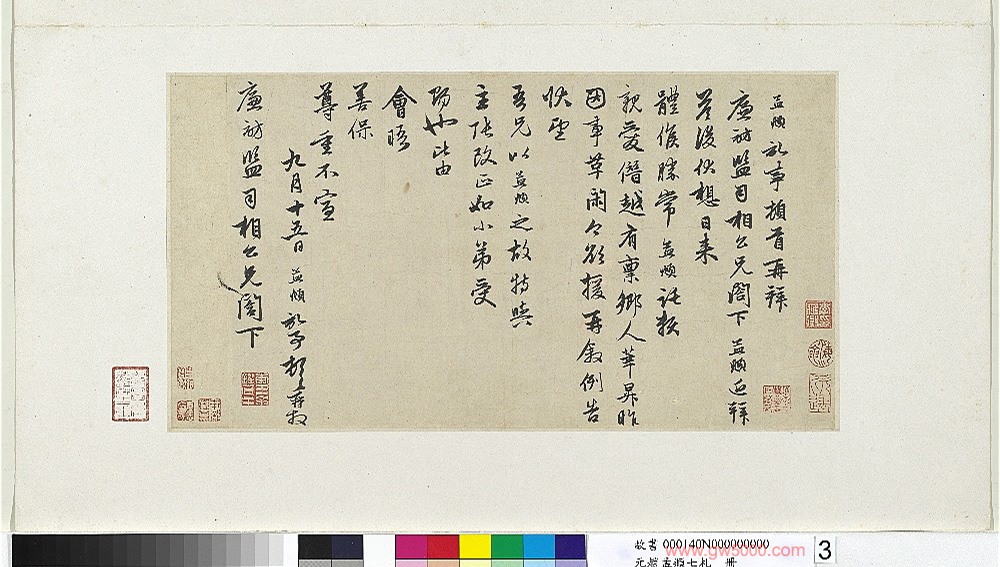 孟頫於事頓首再拜
廉訪監司相公兄閣下孟頫近拜
答後伏想日來
體候勝常孟頫託契
親愛僭越有稟鄉人華昇昨
因事革閑今欲援再敘例告
伏望
吾兄以孟頫之故特與
主張改正如小弟受
賜也此由
會晤
善保
尊重不宣
九月十五日孟頫
廉訪監司相公兄閣下
000140N000000000
www.gw5000.com
元趙孟頫七札 冊
3